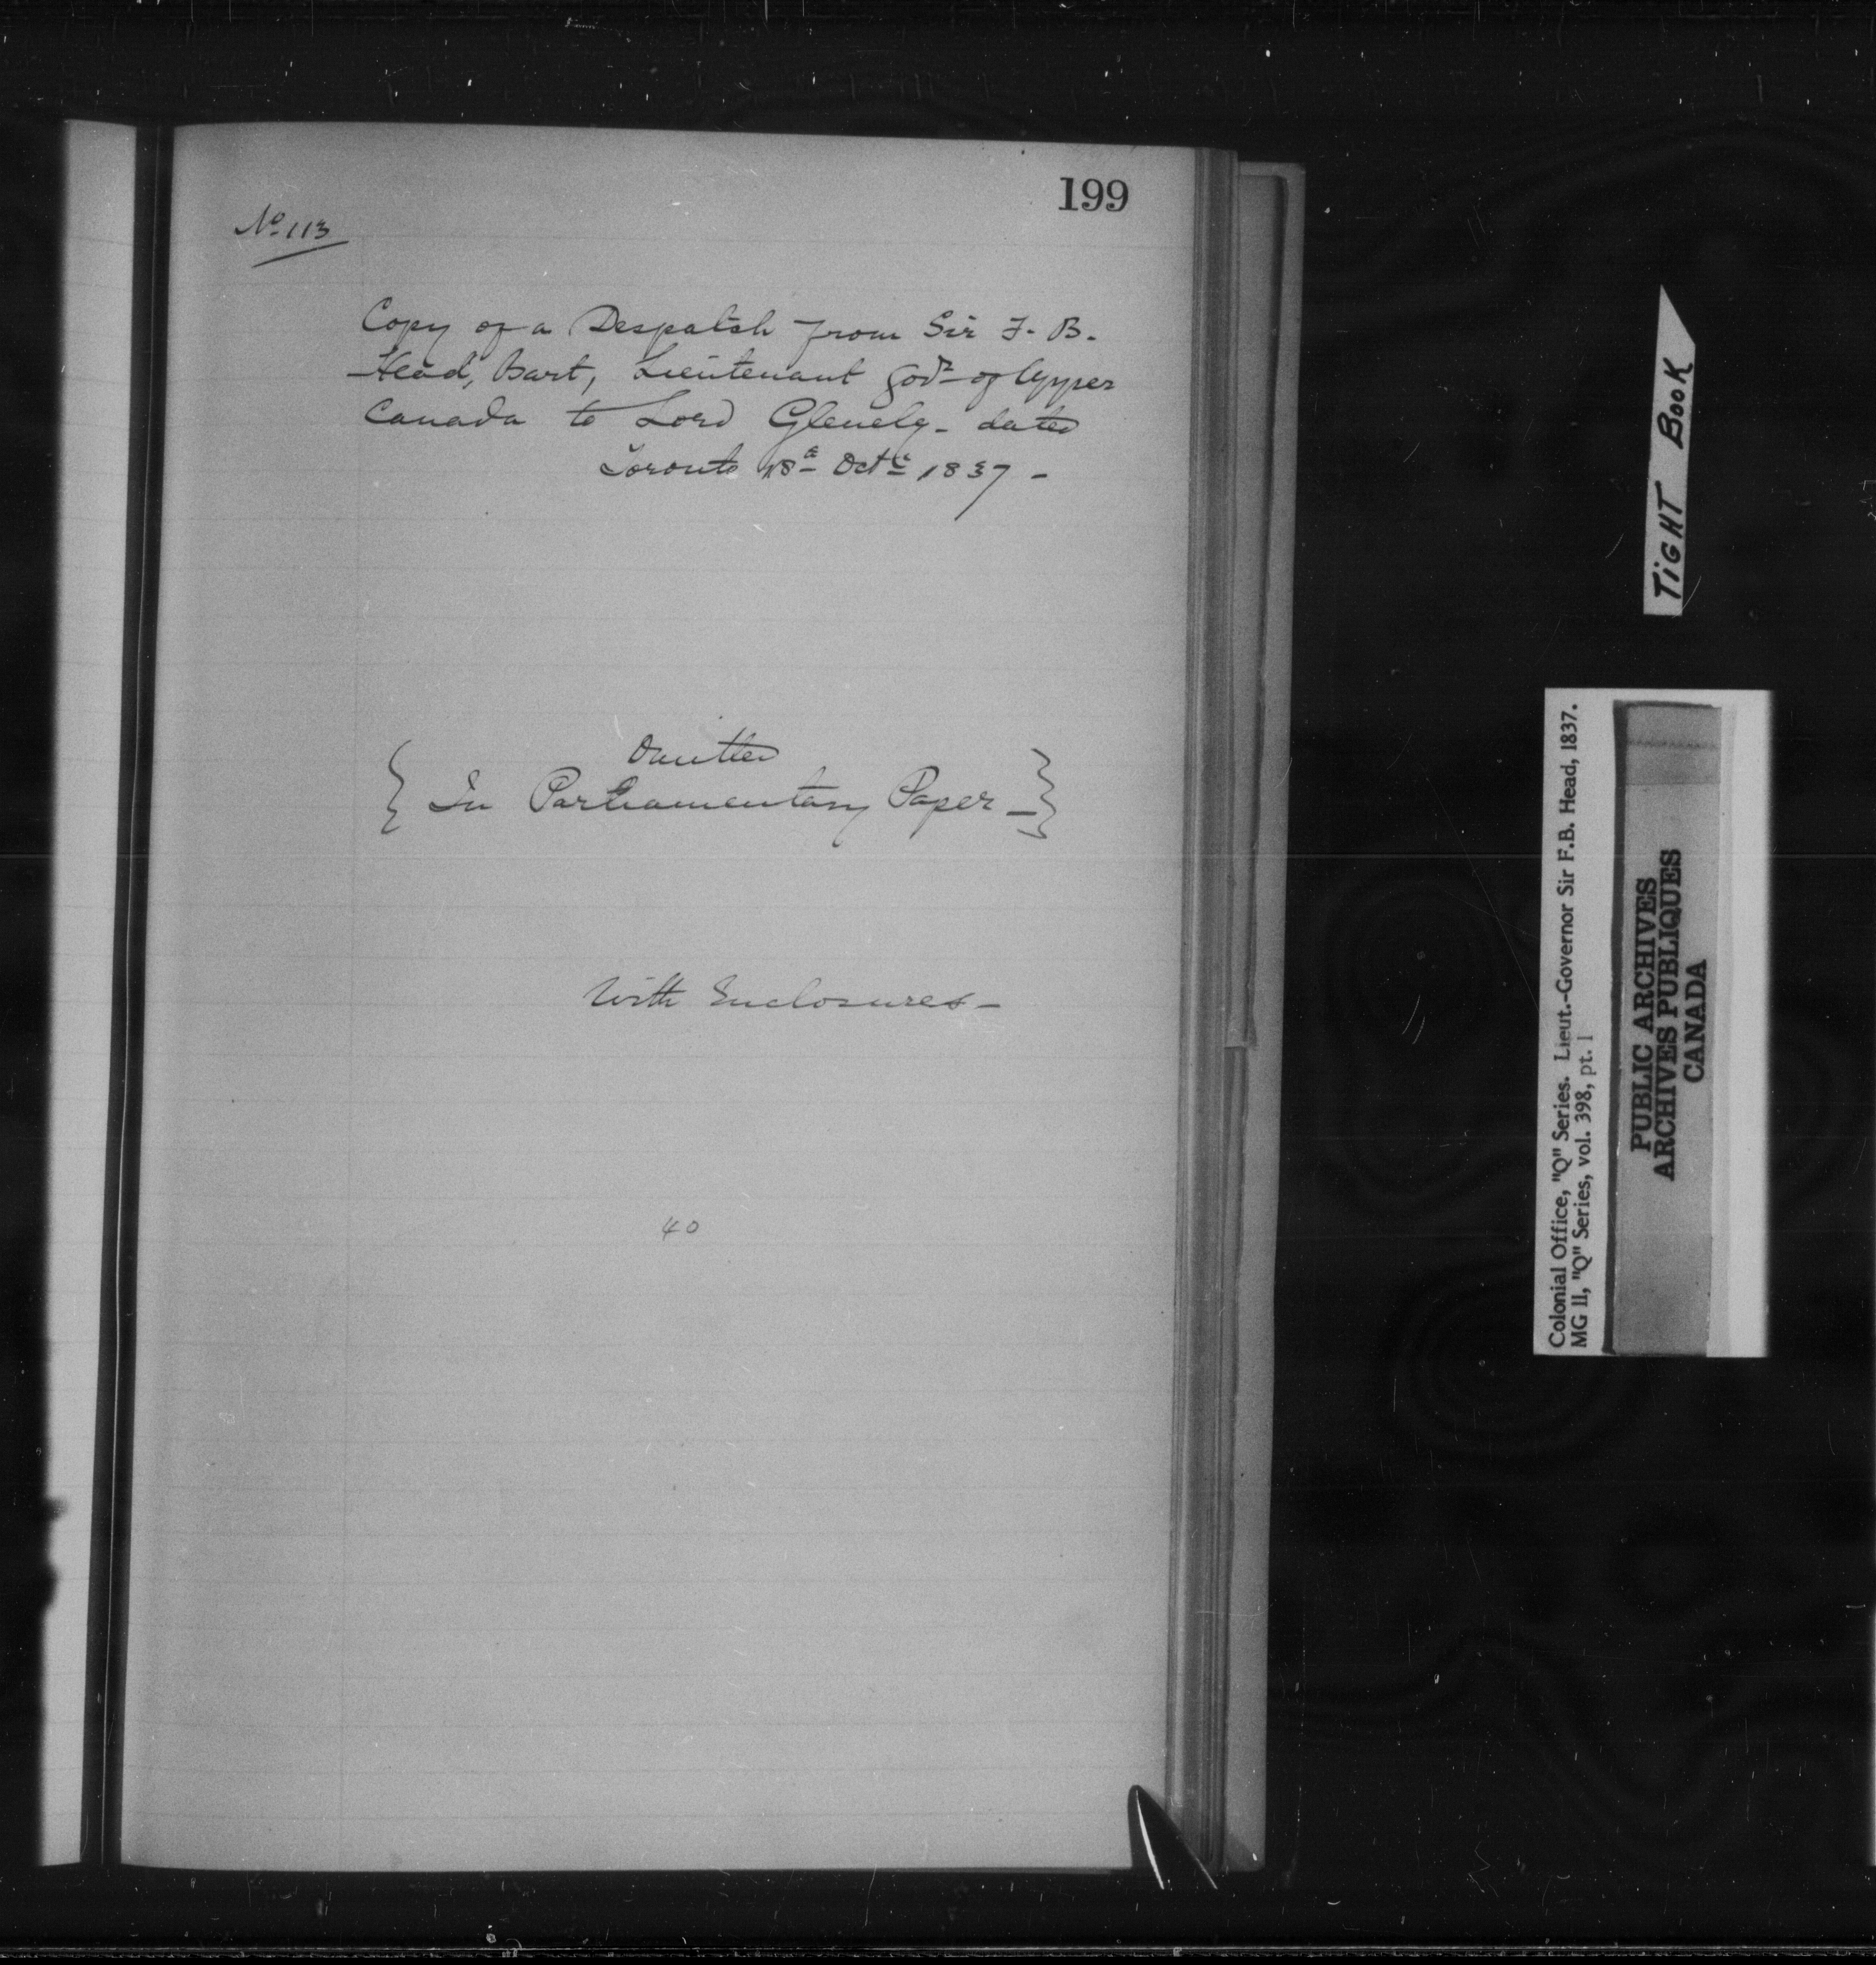 199
No. 113
Copy of a Despatch from Sir F. B.
Head, Bart, Lieutenant Govr of Upper
Canada to Lord Glenelg - dated
Toronto 18th Octr 1837 -
Omitted
{ In Parliamentary Paper - }
With Enclosures -
40
TIGHT BOOK
Colonial Office, "Q" Series. Lieut.-Governor Sir F.B. Head, 1837.
MG 11, "Q" Series, vol. 398, pt. 1
PUBLIC ARCHIVES
ARCHIVES PUBLIQUES
CANADA